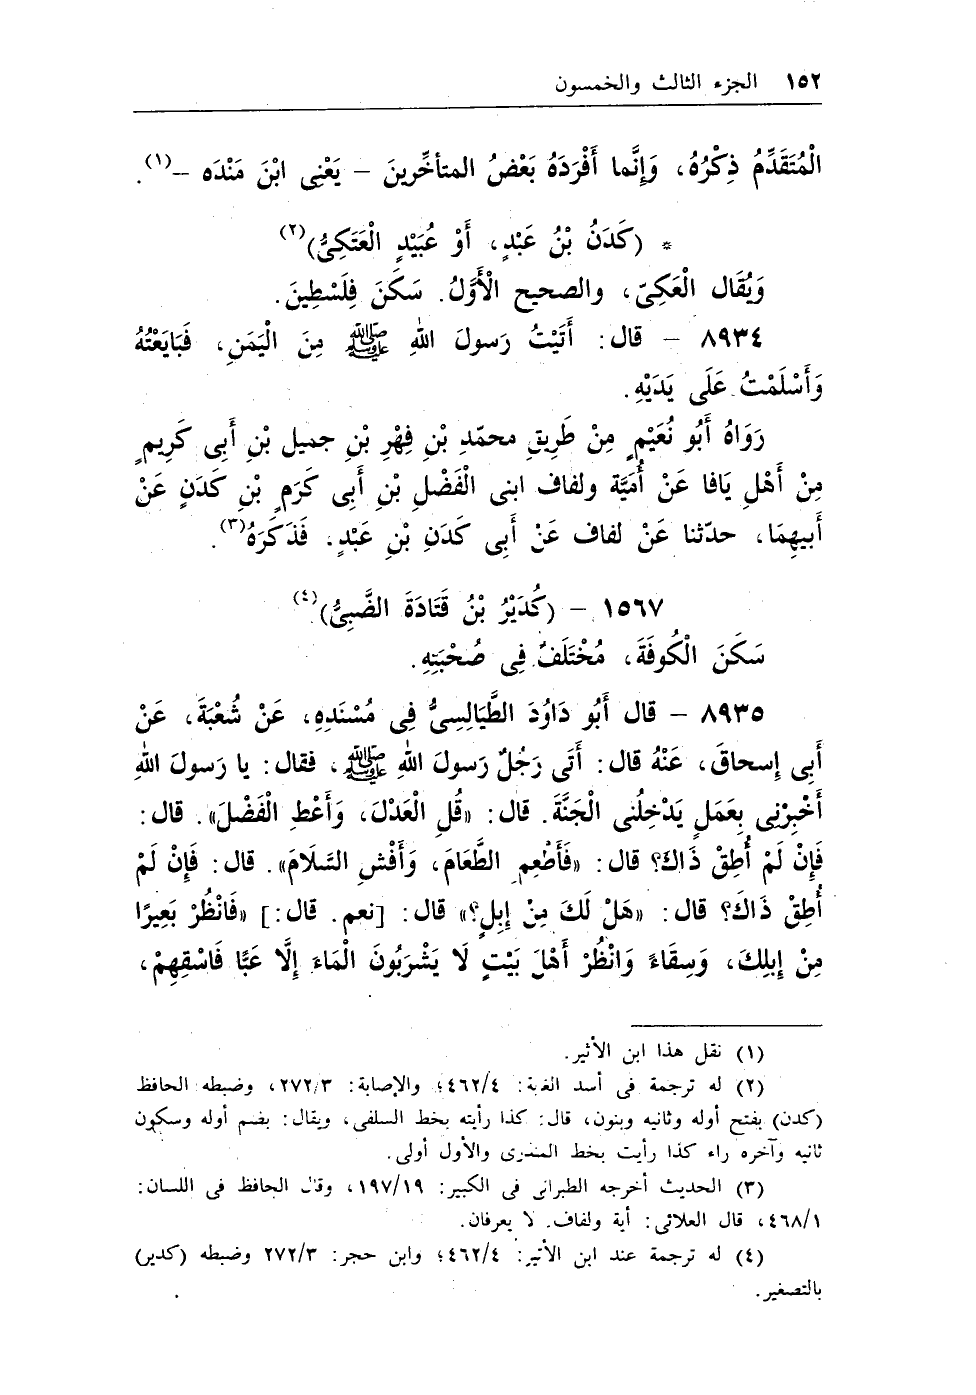 ١٥٢ الجزء الثالث والخمسون
الْمُتَقَدِّمُ ذِكْرُهُ، وَإِنَّما أَفْرَدَهُ بَعْضُ المتأخِّرينَ – يَعْنِى ابْنَ مَنْدَه –(١).
* (كَدَنُ بْنُ عَبْدٍ، أَوْ عُبَيْدٍ الْعَتَكِىُّ)(٢)
وَيُقَال الْعَكِىّ، والصحيح الْأَوَّلُ. سَكَنَ فِلَسْطِينَ.
٨٩٣٤ – قال: أَتَيْتُ رَسولَ اللهِ ﷺ مِنَ الْيَمَنِ، فَبَايَعْتُهُ
وَأَسْلَمْتُ عَلَى يَدَيْهِ.
رَوَاهُ أَبُو نُعَيْمٍ مِنْ طَرِيقِ محمّدِ بْنِ فِهْرِ بْنِ جميل بْنِ أَبِى كَرِيمٍ
مِنْ أَهْلِ يَافا عَنْ أُمَيَّة ولفاف ابنى الْفَضْلِ بْنِ أَبِى كَرَمٍ بْنِ كَدَنٍ عَنْ
أَبيهِمَا، حدّثنا عَنْ لفاف عَنْ أَبِى كَدَنِ بْنِ عَبْدٍ. فَذَكَرَهُ(٣).
١٥٦٧ – (كُدَيْرُ بْنُ قَتَادَةَ الضَّبِىُّ)(٤)
سَكَنَ الْكُوفَةَ، مُخْتَلَفٌ فِى صُحْبَتِهِ.
٨٩٣٥ – قال أَبُو دَاوُدَ الطَّيَالِسِىُّ فِى مُسْنَدِهِ، عَنْ شُعْبَةَ، عَنْ
أَبِى إِسحاقَ، عَنْهُ قال: أَتَى رَجُلٌ رَسولَ اللهِ ﷺ، فقال: يا رَسولَ اللهِ
أَخْبِرْنِى بِعَمَلٍ يَدْخِلُنى الْجَنَّةَ. قال: «قُلِ الْعَدْلَ، وَأَعْطِ الْفَضْلَ». قال:
فَإِنْ لَمْ أُطِقْ ذَاكَ؟ قال: «فَأَطْعِمِ الطَّعَامَ، وَأَفْشِ السَّلَامَ». قال: فَإِنْ لَمْ
أُطِقْ ذَاكَ؟ قال: «هَلْ لَكَ مِنْ إِبِلٍ؟» قال: [نعم. قال:] «فَانْظُرْ بَعِيرًا
مِنْ إِبِلِكَ، وَسِقَاءً وَانْظُرْ أَهْلَ بَيْتٍ لَا يَشْرَبُونَ الْمَاءَ إِلَّا غبًّا فَاسْقِهِمْ،
(١) نقل هذا ابن الأثير.
(٢) له ترجمة فى أسد الغابة: ٤٦٢/٤؛ والإصابة: ٢٧٢/٣، وضبطه الحافظ
(كدن) بفتح أوله وثانيه وبنون، قال: كذا رأيته بخط السلفى، ويقال: بضم أوله وسكون
ثانيه وآخره راء كذا رأيت بخط المنذرى والأول أولى.
(٣) الحديث أخرجه الطبرانى فى الكبير: ١٩٧/١٩، وقال الحافظ فى اللسان:
٤٦٨/١، قال العلائى: أية ولفاف. لا يعرفان.
(٤) له ترجمة عند ابن الأثير: ٤٦٢/٤؛ وابن حجر: ٢٧٢/٣ وضبطه (كدير)
بالتصغير.